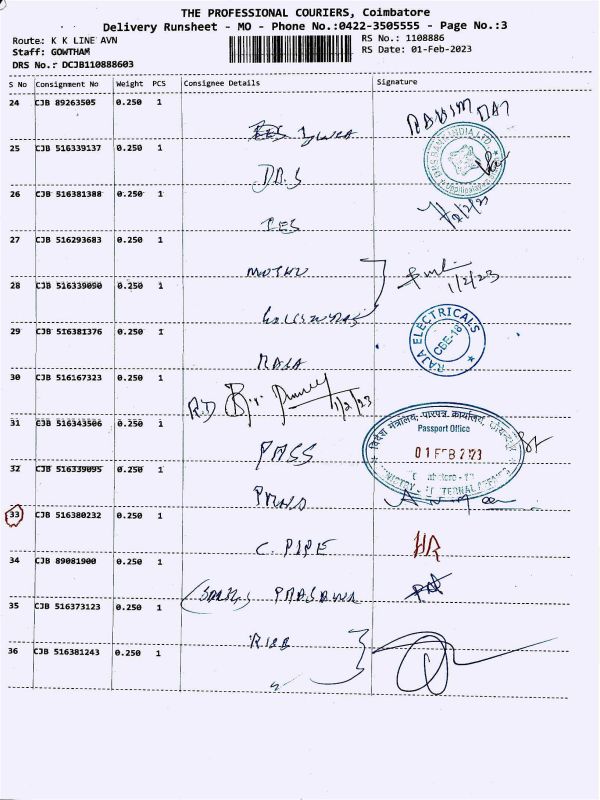 THE PROFESSIONAL COURIERS, Coimbatore
Delivery Runsheet - MO - Phone No.:0422-3505555 - Page No.:3
Route: K K LINE AVN
RS No.: 1108886
Staff: GOWTHAM
RS Date: 01-Feb-2023
DRS No.: DCJB110888603
S No Consignment No Weight PCS Consignee Details Signature
24 CJB 89263505 0.250 1
25 CJB 516339137 0.250 1
DR.S
26 CJB 516381388 0.250 1
1/2/23
CES
27 CJB 516293683 0.250 1
MOTHU
1/2/23
28 CJB 516339090 0.250 1
29 CJB 516381376 0.250 1
RAJA ELECTRICALS
CBE-18
RAJA
30 CJB 516167323 0.250 1
R.D
1/2/23
31 CJB 516343506 0.250 1
विदेश मंत्रालय, पारपत्र कार्यालय, कोयम्बटूर
Passport Office
01 FEB 2023
PASS
32 CJB 516339095 0.250 1
33 CJB 516380232 0.250 1
C. PIPE
HR
34 CJB 89081900 0.250 1
35 CJB 516373123 0.250 1
36 CJB 516381243 0.250 1